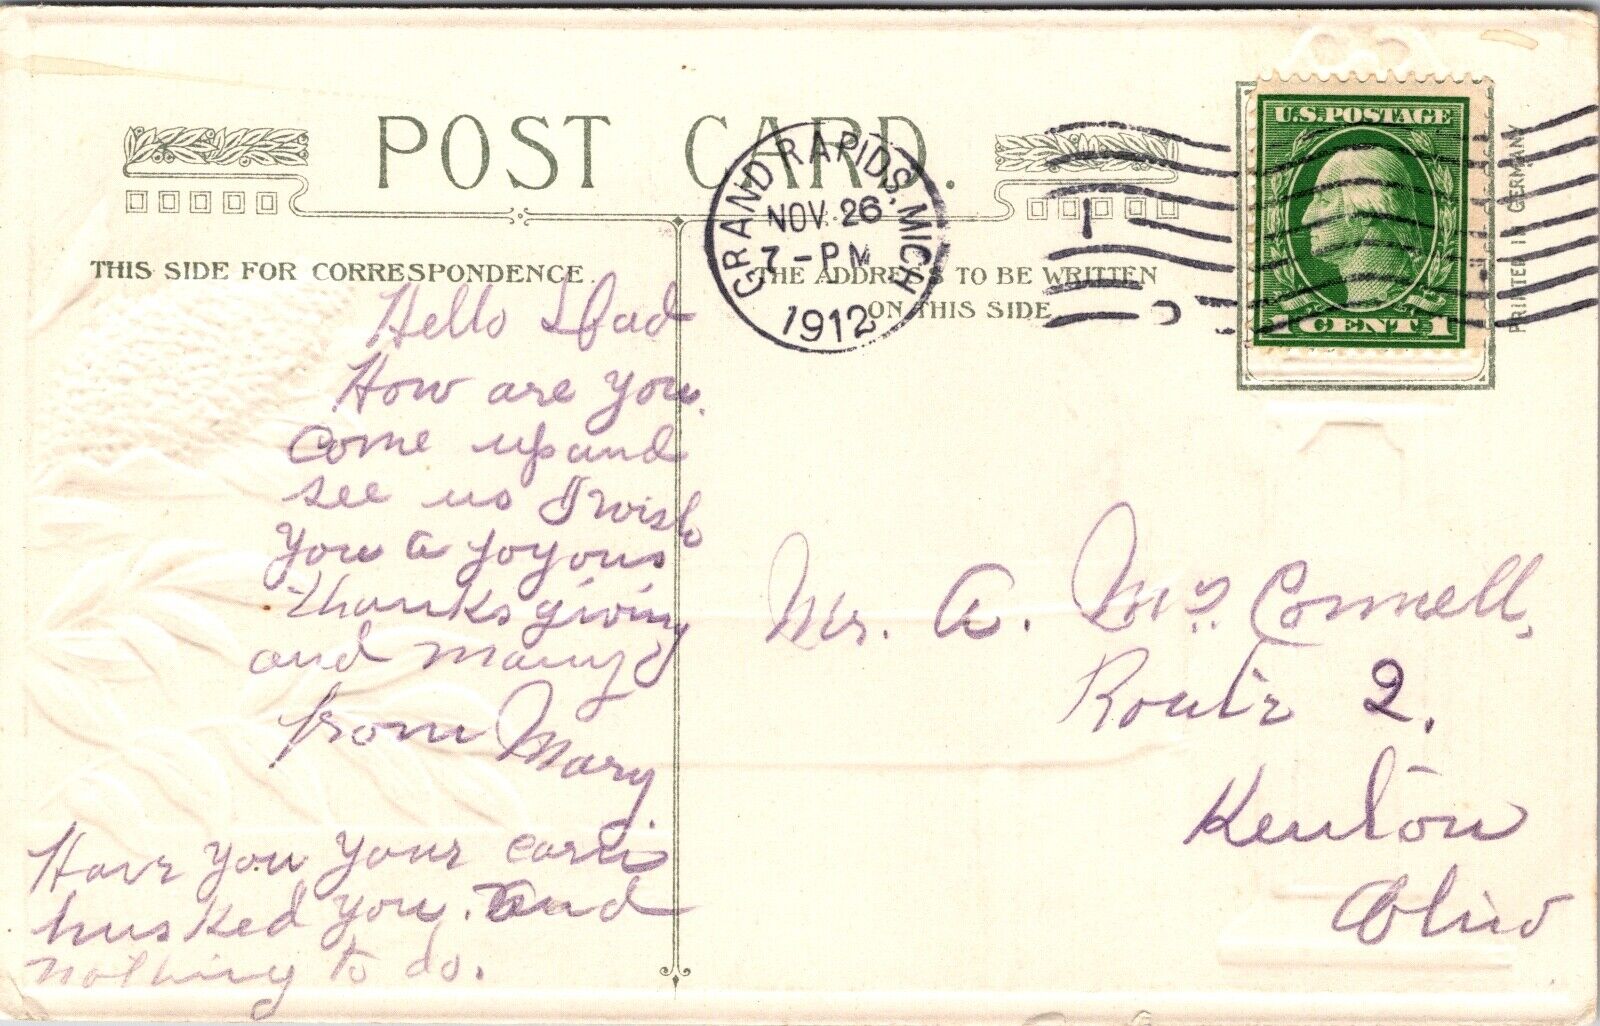 POST CARD.
THIS SIDE FOR CORRESPONDENCE.
THE ADDRESS TO BE WRITTEN
ON THIS SIDE
GRAND RAPIDS, MICH
NOV. 26
7-PM
1912
1
U.S. POSTAGE
1 CENT 1
PRINTED IN GERMANY
Hello Dad
How are you.
come up and
see us I wish
you a joyous
thanksgiving
and many
from Mary.
Have you your corn
husked you and
nothing to do.
Mr. A. Mc Connell,
Route 2.
Kenton
Ohio